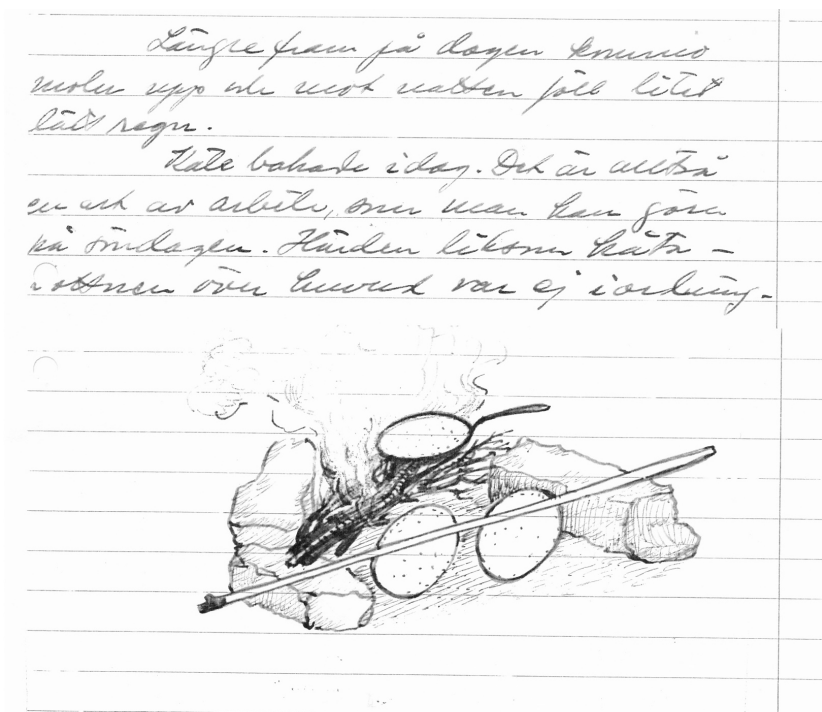 Längre fram på dagen kommo
moln upp och mot natten föll litet
lätt regn.
Kåte bakade idag. Det är alltså
en art av arbete, som man kan göra
på söndagen. Härden liksom kåta-
bottnen över huvud var ej i ordning.